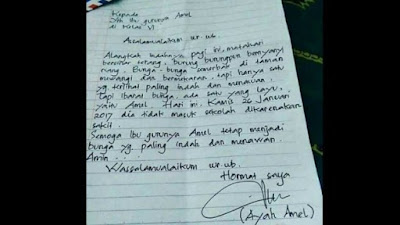 Kepada
Yth Ibu gurunya Amel
di Kelas VI
Assalamualaikum wr. wb.
Alangkah indahnya pagi ini, matahari
bersinar terang, burung burungpun bernyanyi
riang. Bunga-bunga semerbak di taman
mewangi dan bermekaran, tapi hanya satu
yg terlihat paling indah dan menawan.
Tapi ibarat bunga, ada satu yang layu,
yaitu Amel. Hari ini, Kamis 26 Januari
2017 dia tidak masuk sekolah dikarenakan
sakit.
Semoga Ibu gurunya Amel tetap menjadi
bunga yg paling indah dan menawan.
Amin...
Wassalamualaikum wr. wb.
Hormat saya
(Ayah Amel)